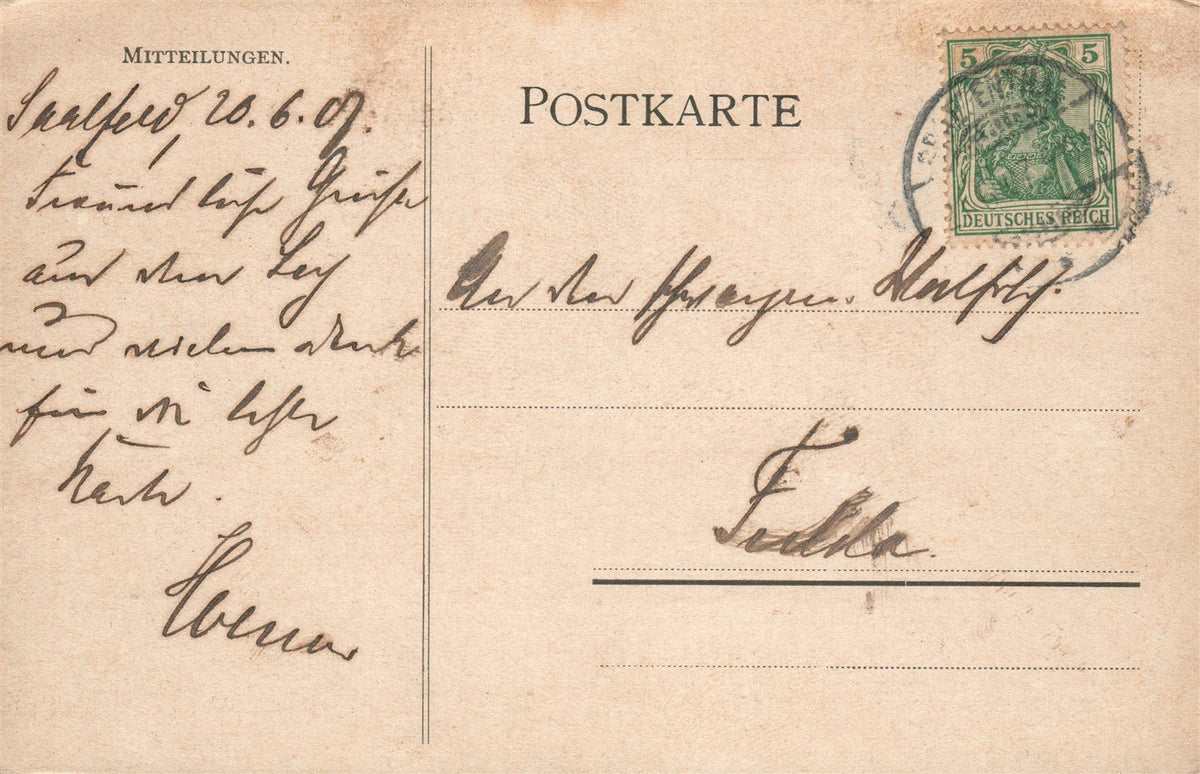 MITTEILUNGEN.
Saalfeld, 20. 6. 07.
Freundliche Grüße
aus den
und vielen Dank
für die letzte
Karte.
POSTKARTE
5 5
DEUTSCHES REICH
An den
Fulda.